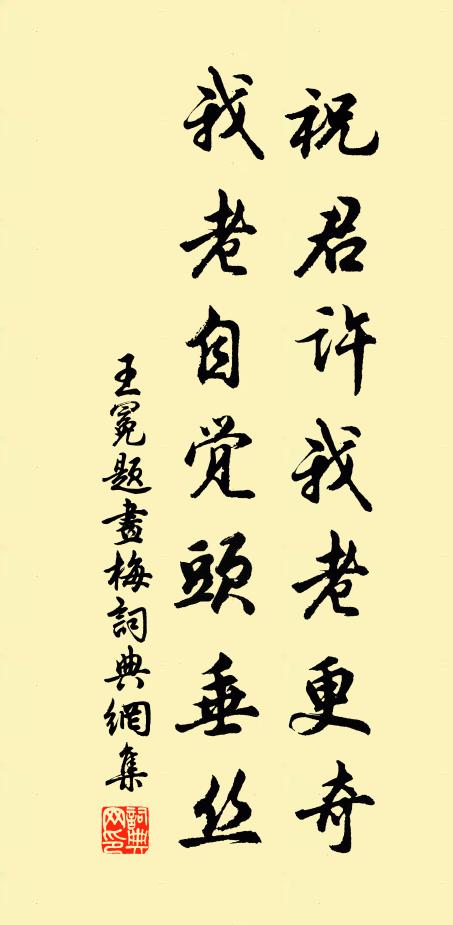 祝君许我老更奇
我老自觉頭垂丝
王冕题畫梅詞典網集
詞典网印